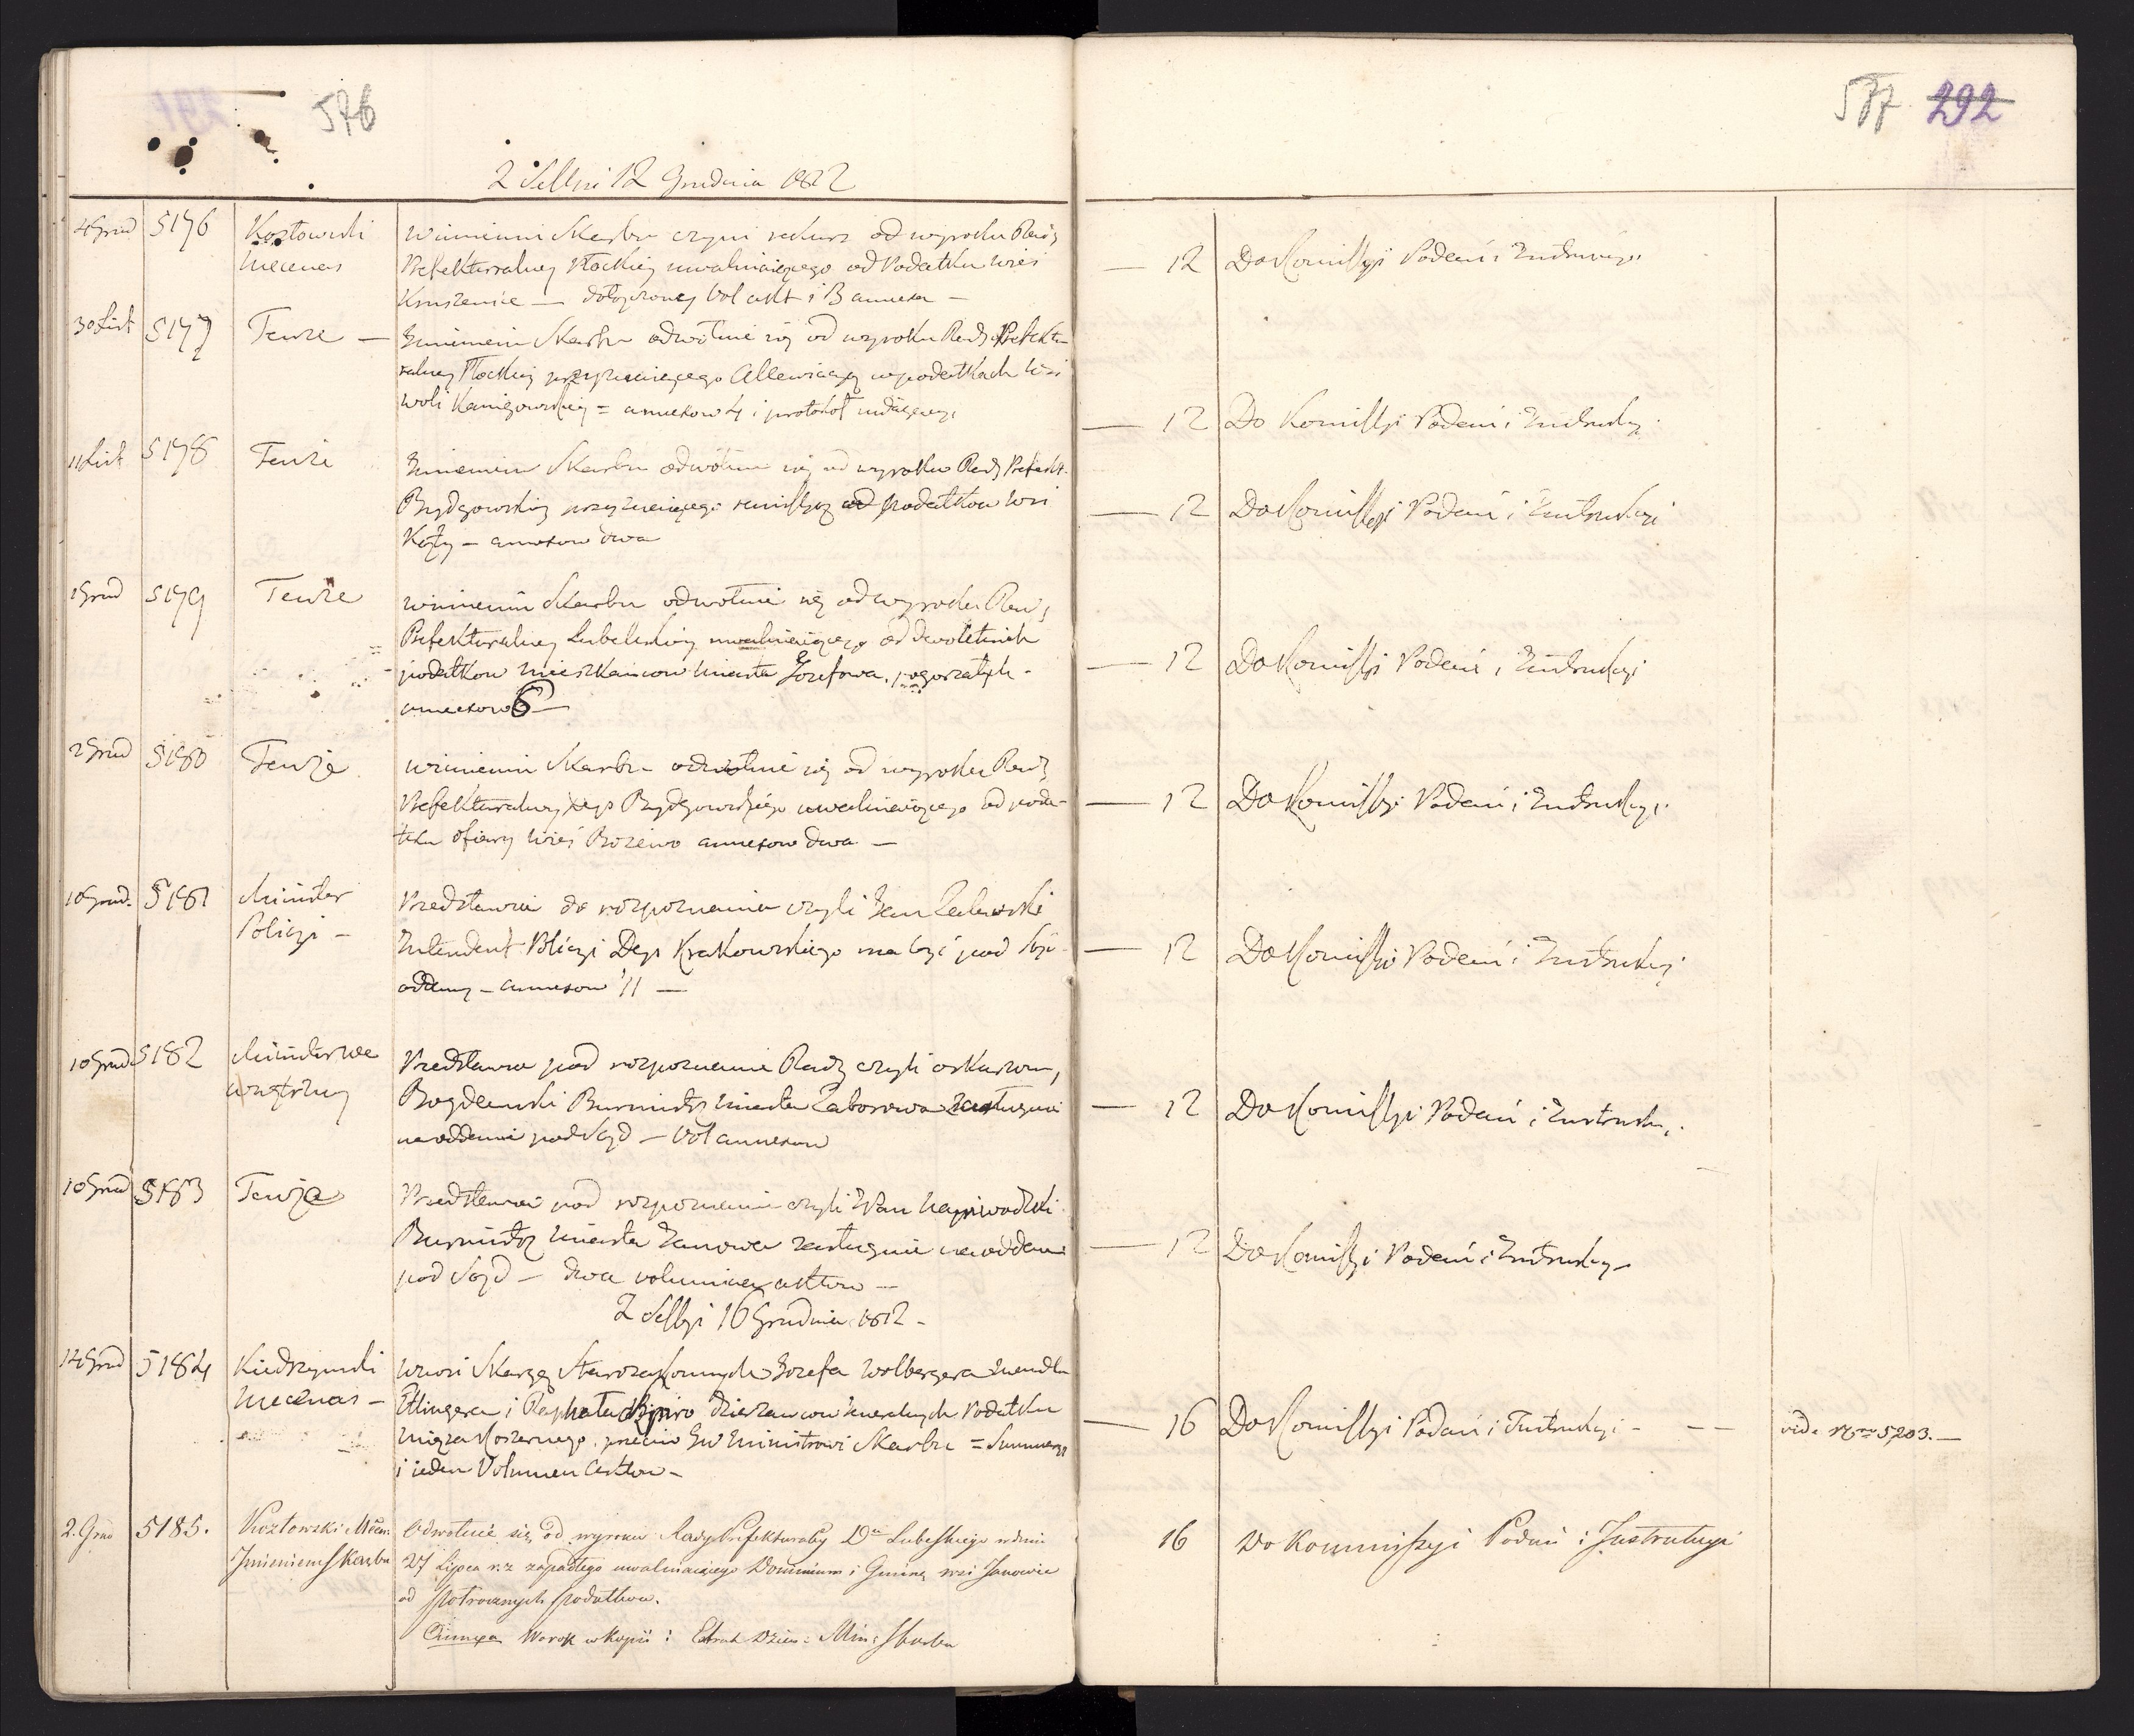 576
577 292
2 Sessyi 12 Grudnia 1812
4 Grud 5176 Kozłowski
Mecenas
Wimieniu Skarbu czyni rekurs od wyroku Rady
Prefekturalney Płockiey uwalniaiącego od Podatku wieś
— dołączony Vol akt i 3 annexa —
— 12 Do Komissyi Podań i Instrukcyi
30 List 5177 Tenże —
Imieniem Skarbu odwołuie się od wyroku Rady Prefektu
ralney Płockiey przyznaiącego Allewiacyą w podatkach wsi
Woli Kanigowskiey = annexow 4 i protokoł
— 12 Do Komissyi Podań i Instrukcy
11 List 5178 Tenże
Imieniem Skarbu odwołuie się od wyroku Rady Prefekt.
Bydgowskiey przyznaiącego remissyą od podatkow wsi
— annexow dwa
— 12 Do Komissyi Podań i Instrukcyi
1 Grud 5179 Tenże
wimieniu Skarbu odwołuie się od wyroku Rady
Prefekturalney Lubelskiey uwalniaiącego od dwoletnich
podatkow mieszkańcow miasta Jozefowa, pogorzałych -
annexow 6 —
— 12 Do Komissyi Podań i Instrukcyi
2 Grud 5180 Tenże
wimieniu Skarbu odwołuie się od wyroku Rady
Prefekturalney Bydgowskiego uwalniaiącego od poda-
tku ofiary wieś Bożewo annexow dwa —
— 12 Do Komissyi Podań i Instrukcyi
10 Grud. 5181 Minister
Policyi —
Przedstawia do rozpoznania czyli Jan
Intendent Policyi Dep Krakowskiego ma być pod Sąd
oddany — annexow 11 —
— 12 Do Komissyi Podań i Instrukcyi
10 Grud 5182 Minister we
wnętrzny
Przedstawia pod rozpoznanie Rady czyli oskarżony
Bogdański Burmistrz miasta Zaborowa zasługuie
na oddanie pod Sąd — Vol annexow
— 12 Do Komissyi Podań i Instrukc.
10 Grud 5183 Tenże
Przedstawia pod rozpoznanie czyli
Burmistrz miasta Janowa zasługuie na oddanie
pod Sąd — dwa volumina aktow —
2 Sessyi 16 Grudnia 1812 -
— 12 Do Komissyi Podań i Instrukcy
14 Grud 5184 Kiedrzynski
Mecenas —
Wnosi Skargę Starozakonnych Jozefa Wolbergera Mendla
Ettingera i Raphała Szpiro Dzierżawcow Generalnych Podatku
Mięsa Koszernego, przeciw JW Ministrowi Skarbu =
i ieden Volumen aktow —
— 16 Do Komissyi Podań i Instrukcyi - - - vid. Nrum 5,203. —
2. Grud 5185. Kozłowski Mecen.
Imieniem Skarbu
Odwołuie się od wyroku Rady Prefekturalney Dtu Lubelskiego w dniu
27 Lipca r.z zapadłego uwalniaiącego Dominium i Gminę wsi Janowie
od połrocznych podatkow.
Annexa Wyrok w kopii i Extrakt Dzien: Min: Skarbu
16 Do Kommissyi Podań i Instrukcyi